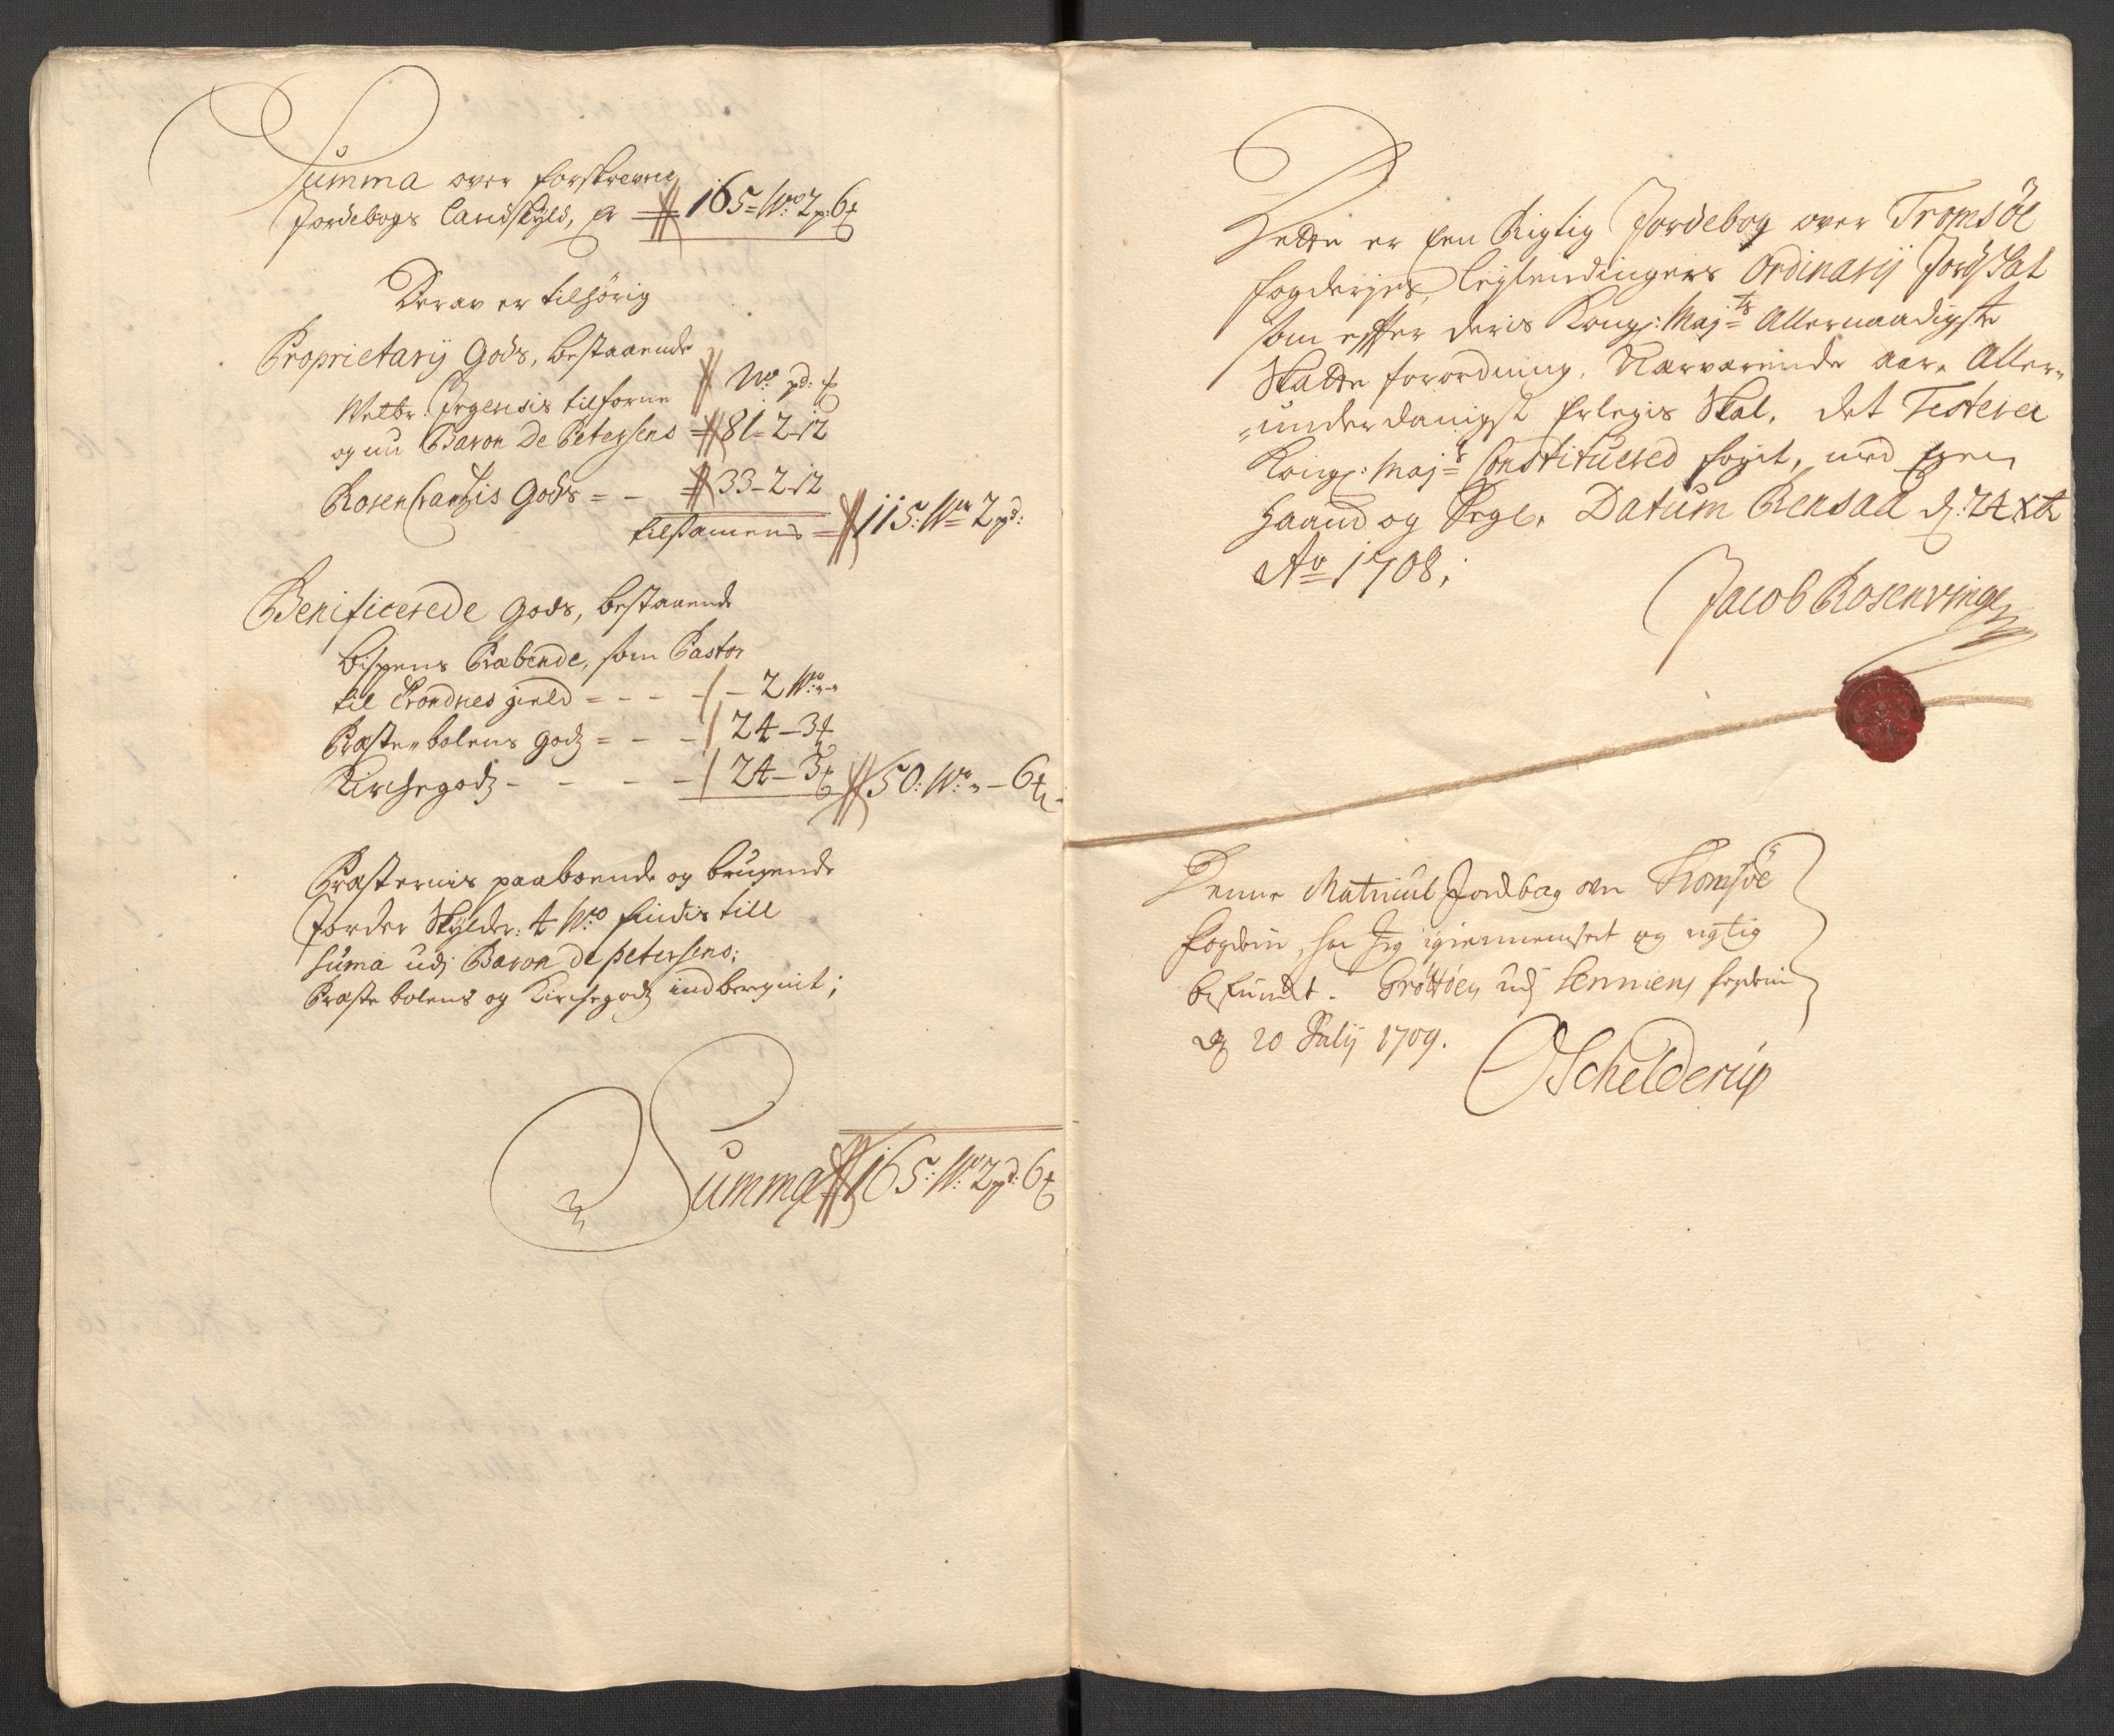 Summa over forskrevne
Jordebogs Landskyld, er 165 = W: 2 p: 6 ℔
Derav er tilhörig
Proprietarij Gods, bestaaende
W: pd: ℔
Welbr: Irgensis tilforne
og nu Baron De Petersens = 81 = 2 - 12
Rosencrantzis Gods = - 33 - 2 - 12
tilsamens = 115: W 2 pd:
Benificerede Gods, bestaaende
Bispens Præbende, som Pastor
til Trondnes gield = - - - - 2 W: - -
Præste bolens godz = - - 24 - 3 ℔
Kirchegodz - - - - 24 - 3 ℔ 50: W: - 6 ℔
Præsternis paaboende og brugende
Jorder Skylder: 4 W: findis till
Suma udj Baron de petersens:
Præste bolens og Kirchegodz indberegnit;
Summa 165: W: 2 pd: 6 ℔
Dette er Een Rigtig Jordebog over Tromsöe
fogderjes, leylendingers Ordinarij Jord Skat
som effter deris Kong: Maj:ts Allernaadigste
Skatte forordning, Nærværende aar, Aller-
underdanigst Erlegis Skal, det Testerer
Kong: Maj:ts Constituered foget, med Egen
Haand og Segl. Datum Rensaa d: 24 Xbr
Ao 1708;
Jacob Rosenvinge
Denne Matricul Jordbog over Tromsöe
fogderie, har Jeg igiennemseet og rigtig
befundet. Gröttöen udj Senniens fogderie
d 20 Julij 1709.
O Schelderup